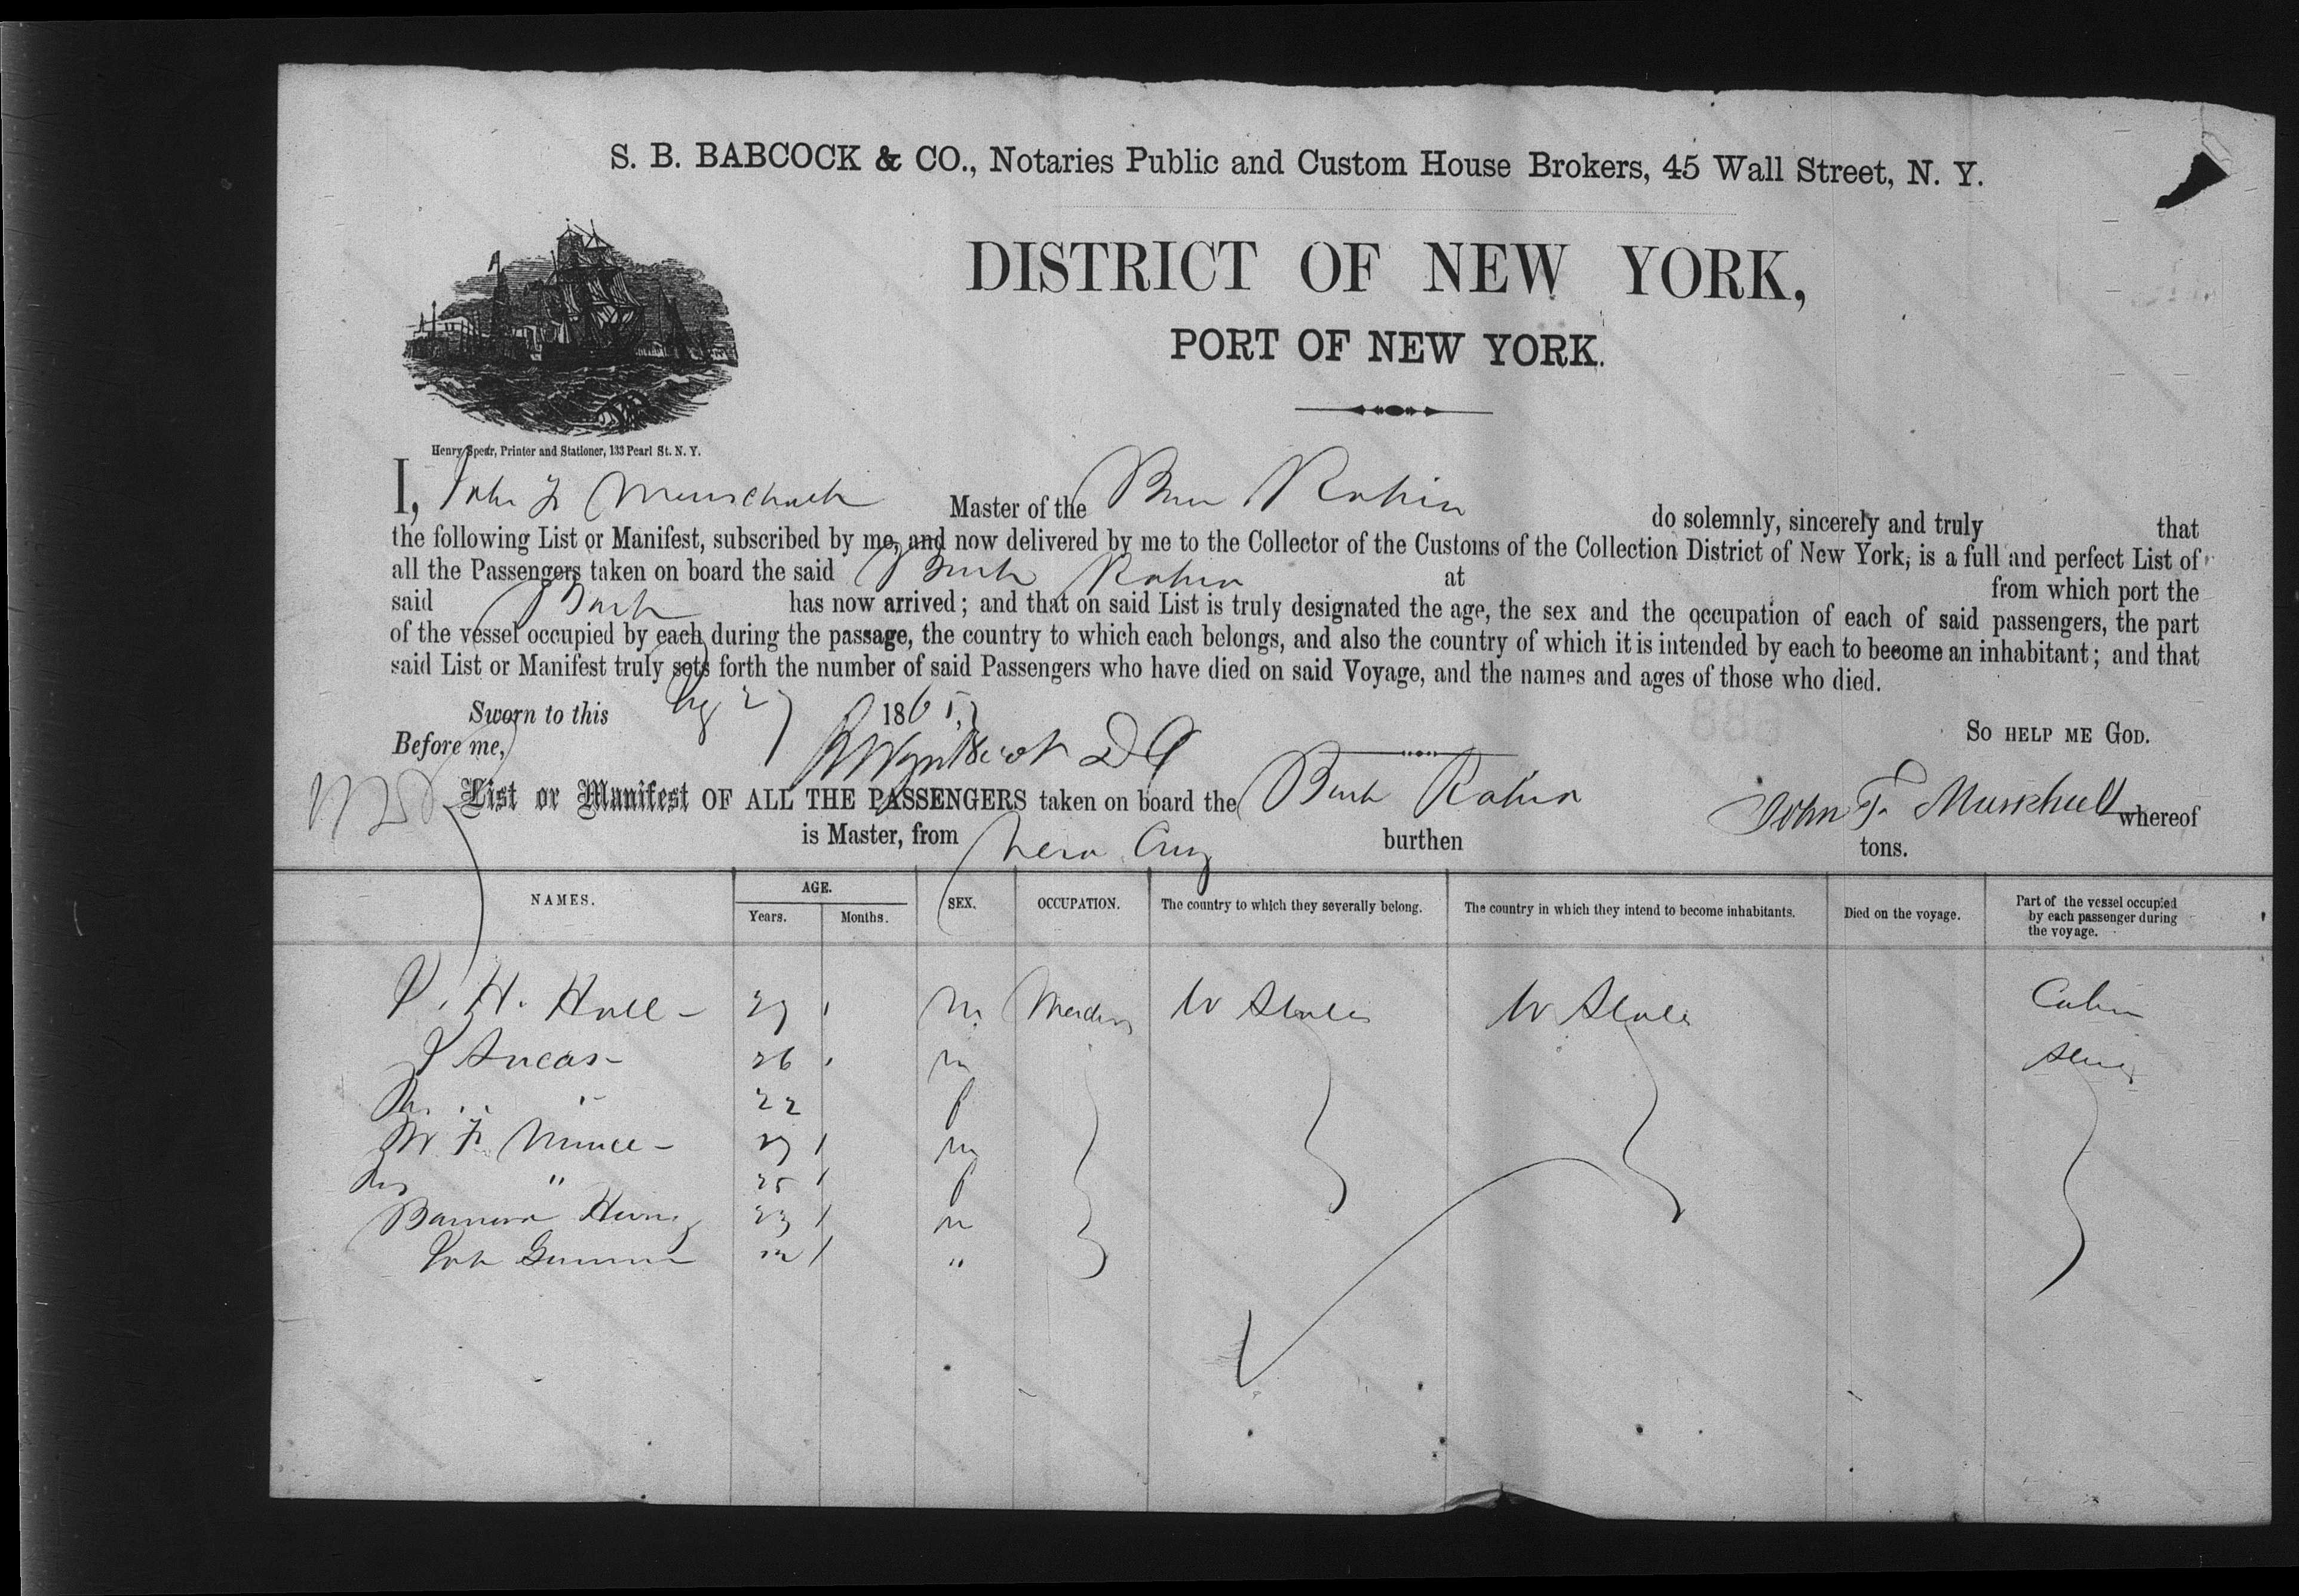 S. B. BABCOCK & CO., Notaries Public and Custom House Brokers, 45 Wall Street, N. Y.
DISTRICT OF NEW YORK,
PORT OF NEW YORK.
Henry Spear, Printer and Stationer, 133 Pearl St. N. Y.
I, John F Master of the do solemnly, sincerely and truly that
the following List or Manifest, subscribed by me, and now delivered by me to the Collector of the Customs of the Collection District of New York, is a full and perfect List of
all the Passengers taken on board the said Bark at from which port the
said Bark has now arrived; and that on said List is truly designated the age, the sex and the occupation of each of said passengers, the part
of the vessel occupied by each during the passage, the country to which each belongs, and also the country of which it is intended by each to become an inhabitant; and that
said List or Manifest truly sets forth the number of said Passengers who have died on said Voyage, and the names and ages of those who died.
Sworn to this 1865 SO HELP ME GOD.
Before me,
List or Manifest OF ALL THE PASSENGERS taken on board the Bark John F. whereof
is Master, from Vera Cruz burthen tons.
NAMES. AGE. SEX. OCCUPATION. The country to which they severally belong. The country in which they intend to become inhabitants. Died on the voyage. Part of the vessel occupied by each passenger during the voyage.
Years. Months.
H. Hall - 27 m U States U States Cabin
Lucas - 26 m
" 22 f
W F 27 m
" 25 f
23 m
"